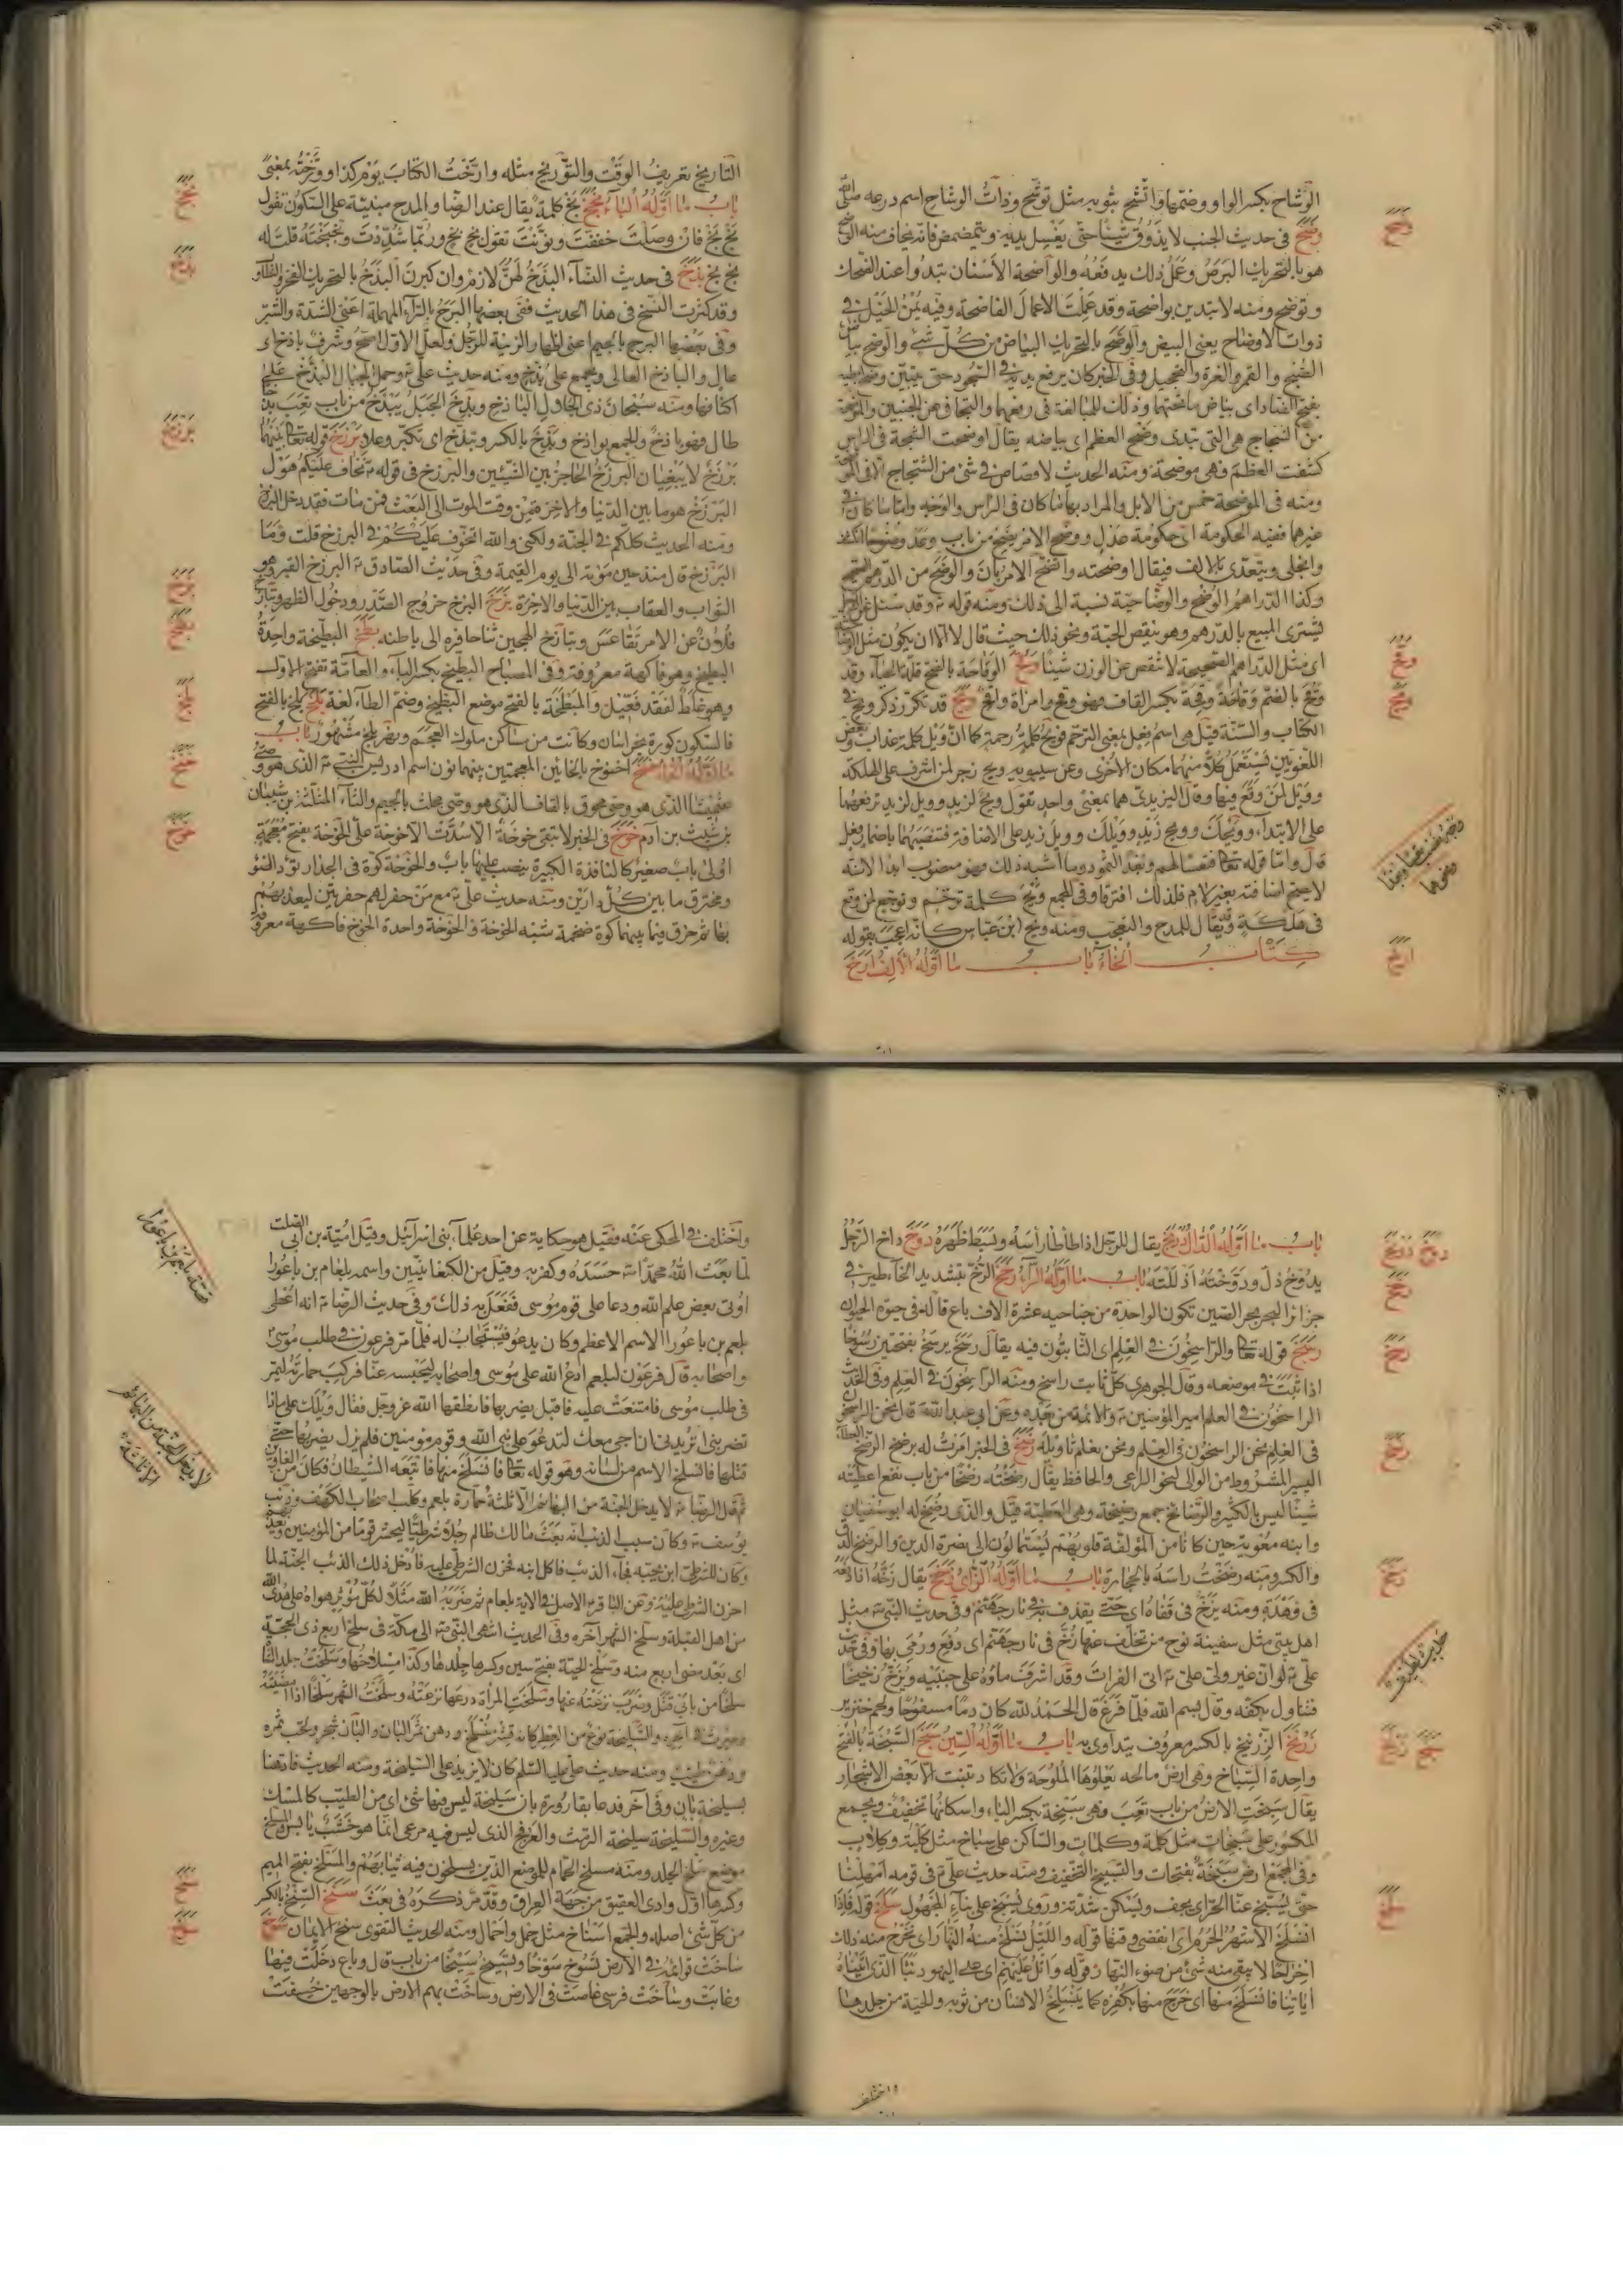 الوشاح بكسر الواو وضمها واتشح بثوبه مثل توشح وذات الوشاح اسم درعه صلى الله
وضح في حديث الجنب لا يذوق شيئا حتى يغسل يديه ويتمضمض فانه يخاف منه الوضح
هو بالتحريك البرص وعمل ذلك يدفعه والواضحة الأسنان تبدوا عند الضحك
وتوضح ومنه لا تبدين بواضحة وقد عملت الاعمال الفاضحة وفيه يمن الخيل في
ذوات الاوضاح يعنى البيض والوضح بالتحريك البياض من كل شئ والوضح بياض
الصبح والقمر والغرة والتحجيل وفي الخبر كان يرفع يديه في السجود حتى يتبين وضح ابطيه
من الشجاج هي التي تبدى وضح العظم اى بياضه يقال اوضحت الشجة في الراس
كشفت العظم فهي موضحة ومنه الحديث لا قصاص في شئ من الشجاج الا في الموضحة
ومنه في الموضحة خمس من الابل والمراد بها ما كان في الراس والوجه واما ما كان في
غيرهما ففيه الحكومة اى حكومة عدل ووضح الامر يضح من باب وعد وضوحا انكشف
وانجلى ويتعدى بالالف فيقال اوضحته واتضح الامر بان والوضح من الدرهم الصحيح
وكذا الدراهم الوضح والوضاحية نسبة الى ذلك ومنه قوله ع وقد سئل عن الرجل
يشترى المبيع بالدرهم وهو ينقص الحبة ونحو ذلك حيث قال لا الا ان يكون مثل الوضاحية
اى مثل الدراهم الصحيحة لا تنقص عن الوزن شيئا وقح الوقاحة بالفتح قلة الحياء وقد
وقح بالضم وقاحة وقحة بكسر القاف فهو وقح وامرأة وقح ويح قد تكرر ذكر ويح في
الكتاب والسنة قيل هى اسم فعل بمعنى الترحم فويح كلمة رحمة كما ان ويل كلمة عذاب وبعض
اللغويين يستعمل كلا منهما مكان الاخرى وعن سيبويه ويح زجر لمن اشرف على الهلكة
وويل لمن وقع فيها وقال اليزيدى هما بمعنى واحد تقول ويح لزيد وويل لزيد ترفعهما
على الابتداء وويحك وويح زيد وويلك وويل زيد على الاضافة فتنصبهما باضمار فعل
قال واما قوله تعالى فتعسا لهم وبعدا لثمود وما اشبه ذلك فهو منصوب ابدا لانه
لا يصح اضافته بغير لام فلذلك افترقا وفي المجمع ويح كلمة ترحم وتوجع لمن وقع
في هلكة وقد يقال للمدح والتعجب ومنه ويح ابن عباس كانه اعجب بقوله
كتاب الخاء باب ما اوله الالف ارخ
وضح
وقح
ويح
ارخ
التاريخ تعريف الوقت والتوريخ مثله وارخت الكتاب يوم كذا وورخته بمعنى
باب ما اوله الباء بخخ بخ كلمة يقال عند الرضا والمدح مبنية على السكون تقول
بخ بخ فان وصلت خففت ونونت تقول بخ بخ وربما شددت وبخبخته قلت له
بخ بخ بذخ في حديث النساء البذخ لهن لازم وان كبرن البذخ بالتحريك الفخر والتطاول
وقد كثرت النسخ في هذا الحديث ففي بعضها البرخ بالراء المهملة اعنى الشدة والشر
وفى بعضها البرج بالجيم اعنى اظهار الزينة للرجل ولعل الاول اصح وشرف باذخ اى
عال والباذخ العالى ويجمع على بذخ ومنه حديث على ع وحمل الجبال البذخ على
اكتافها ومنه سبحان ذى الجلال الباذخ وبذخ الجبل يبذخ من باب تعب بذخا
طال فهو باذخ والجمع بواذخ وبذخ بالكسر وتبذخ اى تكبر وعلا برزخ قوله تعالى بينهما
برزخ لا يبغيان البرزخ الحاجز بين الشيئين والبرزخ في قوله ع نخاف عليكم هول
البرزخ هو ما بين الدنيا والاخرة من وقت الموت الى البعث فمن مات فقد دخل البرزخ
ومنه الحديث كلكم في الجنة ولكنى والله اتخوف عليكم في البرزخ قلت وما
البرزخ قال منذ حين موته الى يوم القيمة وفي حديث الصادق ع البرزخ القبر وهو
الثواب والعقاب بين الدنيا والاخرة بزخ البزخ خروج الصدر ودخول الظهر وتبازخ
فلان عن الامر تقاعس وتبازخ الهجين ثنا حافره الى باطنه بطخ البطيخة واحدة
البطيخ وهو فاكهة معروفة وفي المصباح البطيخ بكسر الباء والعامة تفتح الاول
وهو غلط لفقد فعيل والمبطخة بالفتح موضع البطيخ وضم الطاء لغة بلخ بلخ بالفتح
فالسكون كورة بخراسان وكانت من مساكن ملوك العجم ونهر بلخ مشهور باب
اخنوخ بالخائين المعجمتين بينهما نون اسم ادريس النبي ع الذى هو وصى
بن شيث بن آدم خوخ في الخبر لا تبقى خوخة الا سدت الا خوخة على الخوخة بفتح معجمة
اولى باب صغير كالنافذة الكبيرة ينصب عليها باب والخوخة كوة في الجدار تؤد الضوء
ومخترق ما بين كل دارين ومنه حديث على ع مع من حفر لهم حفرتين ليعذبهم
بها ثم خرق فيما بينهما كوة ضخمة شبه الخوخة والخوخة واحدة الخوخ فاكهة معروفة
بخخ
بذخ
برزخ
بزخ
بطخ
بلخ
خوخ
باب ما اوله الدال دربخ يقال للرجل اذا طأطأ رأسه وبسط ظهره دوخ داخ الرجل
يدوخ ذل ودوخته اذللته باب ما اوله الراء رخخ الرخ بتشديد الخاء طير في
جزائر البحر بحر الصين تكون الواحدة من جناحيه عشرة الاف باع قاله في حيوة الحيوان
رسخ قوله تعالى والراسخون في العلم اى الثابتون فيه يقال رسخ يرسخ بفتحتين رسوخا
اذا ثبت في موضعه وقال الجوهرى كل ثابت راسخ ومنه الراسخون في العلم وفي الحديث
الراسخون في العلم امير المؤمنين ع والائمة من بعده وعن ابى عبد الله ع قال نحن الراسخون
في العلم نحن الراسخون في العلم ونحن نعلم تاويله رضخ في الخبر امرت له برضخ الرضخ العطاء
اليسير المشروط من الوالى لنحو الراعى والحافظ يقال رضخته رضخا من باب نفع اعطيته
شيئا ليس بالكثير والرضائخ جمع رضيخة وهى العطية قيل والذى رضخ له ابو سفيان
وابنه معوية حين كانا من المؤلفة قلوبهم يستمالون الى نصرة الدين والرضخ الدق
والكسر ومنه رضخت راسه بالحجارة باب ما اوله الزاى زخخ يقال زخه اذا دفعه
في وهدة ومنه يزخ في قفاه اى حتى يقذف به في نار جهنم وفي حديث النبى ص مثل
اهل بيتى مثل سفينة نوح من تخلف عنها زخ في نار جهنم اى دفع ورمى بها وفي حديث
على ع اتى الفرات وقد اشرف ماؤه على جنبيه ويزخ زخيخا
فتناول بكفه وقال بسم الله فلما فرغ قال الحمد لله كان دما مسفوحا ولحم خنزير
زرنخ الزرنيخ بالكسر معروف يتداوى به باب ما اوله السين سبخ السبخة بالفتح
واحدة السباخ وهى ارض مالحة يعلوها الملوحة ولا تكاد تنبت الا بعض الاشجار
يقال سبخت الارض من باب تعب وهى سبخة بكسر الباء واسكانها تخفيف ويجمع
المكسور على سبخات مثل كلمة وكلمات والساكن على سباخ مثل كلبة وكلاب
وفي المجمع ارض سبخة بفتحات والتسبيخ التخفيف ومنه حديث على ع في قومه امهلنا
حتى يسبخ عنا الحر اى يخف ويسكن شدته وروى يسبخ على بناء المجهول سلخ قوله فاذا
انسلخ الاشهر الحرم اى انقضى وقتها قوله والليل نسلخ منه النهار اى نخرج منه ذلك
اخراجا لا يبقى منه شئ من ضوء النهار قوله واتل عليهم اى على اليهود نبأ الذى اتيناه
اياتنا فانسلخ منها اى خرج منها بكفره كما ينسلخ الانسان من ثوبه والحية من جلدها
دوخ
رخخ
رسخ
رضخ
زخخ
زرنخ
سبخ
سلخ
واختلف
واختلف في المحكى عنه فقيل هو حكاية عن احد علماء بنى اسرائيل وقيل امية بن ابى الصلت
لما بعث الله محمدا ص حسده وكفر به وقيل من الكنعانيين واسمه بلعام بن باعورا
اوتى بعض علم الله ودعا على قوم موسى ففعل به ذلك وفي حديث الرضا ع انه اعطى
بلعم بن باعورا الاسم الاعظم وكان يدعو فيستجاب له فلما مر فرعون في طلب موسى
واصحابه قال فرعون لبلعم ادع الله على موسى واصحابه ليحبسه عنا فركب حمارته ليمر
في طلب موسى فامتنعت عليه فاقبل يضربها فانطقها الله عز وجل فقال ويلك على ماذا
تضربنى اتريد ان اجئ معك لتدعو على نبى الله وقوم مؤمنين فلم يزل يضربها حتى
قتلها فانسلخ الاسم من لسانه وهو قوله تعالى فانسلخ منها فاتبعه الشيطان فكان من الغاوين
ثم قال الرضا ع لا يدخل الجنة من البهائم الا ثلثة حمارة بلعم وكلب اصحاب الكهف وذئب
يوسف ع وكان سبب الذئب انه بعث مالك ظالم رجلا شرطيا ليحشر قوما من المؤمنين ويعذبهم
وكان للشرطى ابن يحبه فجاء الذئب فاكل ابنه فحزن الشرطى عليه فادخل ذلك الذئب الجنة لما
احزن الشرطى وعن الباقر ع الاصل في الاية بلعام ثم ضربه الله مثلا لكل مؤثر هواه على هدى الله
من اهل القبلة وسلخ الشهر آخره وفي الحديث انتهى النبى ص الى مكة في سلخ اربع ذى الحجة
اى بعد مضى اربع منه وسلخ الحية بفتح سين وكسرها جلدها وكذا مسلاخها وسلخت جلد الشاة
سلخا من بابى قتل وضرب نزعته عنها وسلخت المرأة درعها نزعته وسلخت الشهر سلخا اذا امضيته
وصرت في آخره والسليخة نوع من العطر كانه قشر منسلخ ودهن ثمر البان والبان شجر ولحب ثمره
ودهن طيب ومنه حديث على عليه السلم كان لا يزيد على السليخة ومنه الحديث
بسليخة بان وفي آخر فدعا بقارورة بان سليخة ليس فيها شئ اى من الطيب كالمسك
وغيره والسليخة سليخة الرمث والعرفج الذى ليس فيه مرعى انما هو خشب يابس والمسلخ
موضع سلخ الجلد ومنه مسلخ الحمام للموضع الذين يسلخون فيه ثيابهم والمسلخ بفتح الميم
وكسرها اول وادى العقيق من جهة العراق وقد مر ذكره في بعث سنخ السنخ بالكسر
من كل شئ اصله والجمع اسناخ مثل حمل واحمال ومنه الحديث التقوى سنخ الايمان سوخ
ساخت قوائمه في الارض تسوخ سوخا وتسيخ سيخا من باب قال وباع دخلت فيها
وغابت وساخت فرسى غاصت في الارض وساخت بهم الارض بالوجهين خسفت
قصة بلعم بن باعورا
لا يدخل الجنة من البهائم الا ثلثة
سنخ
سوخ